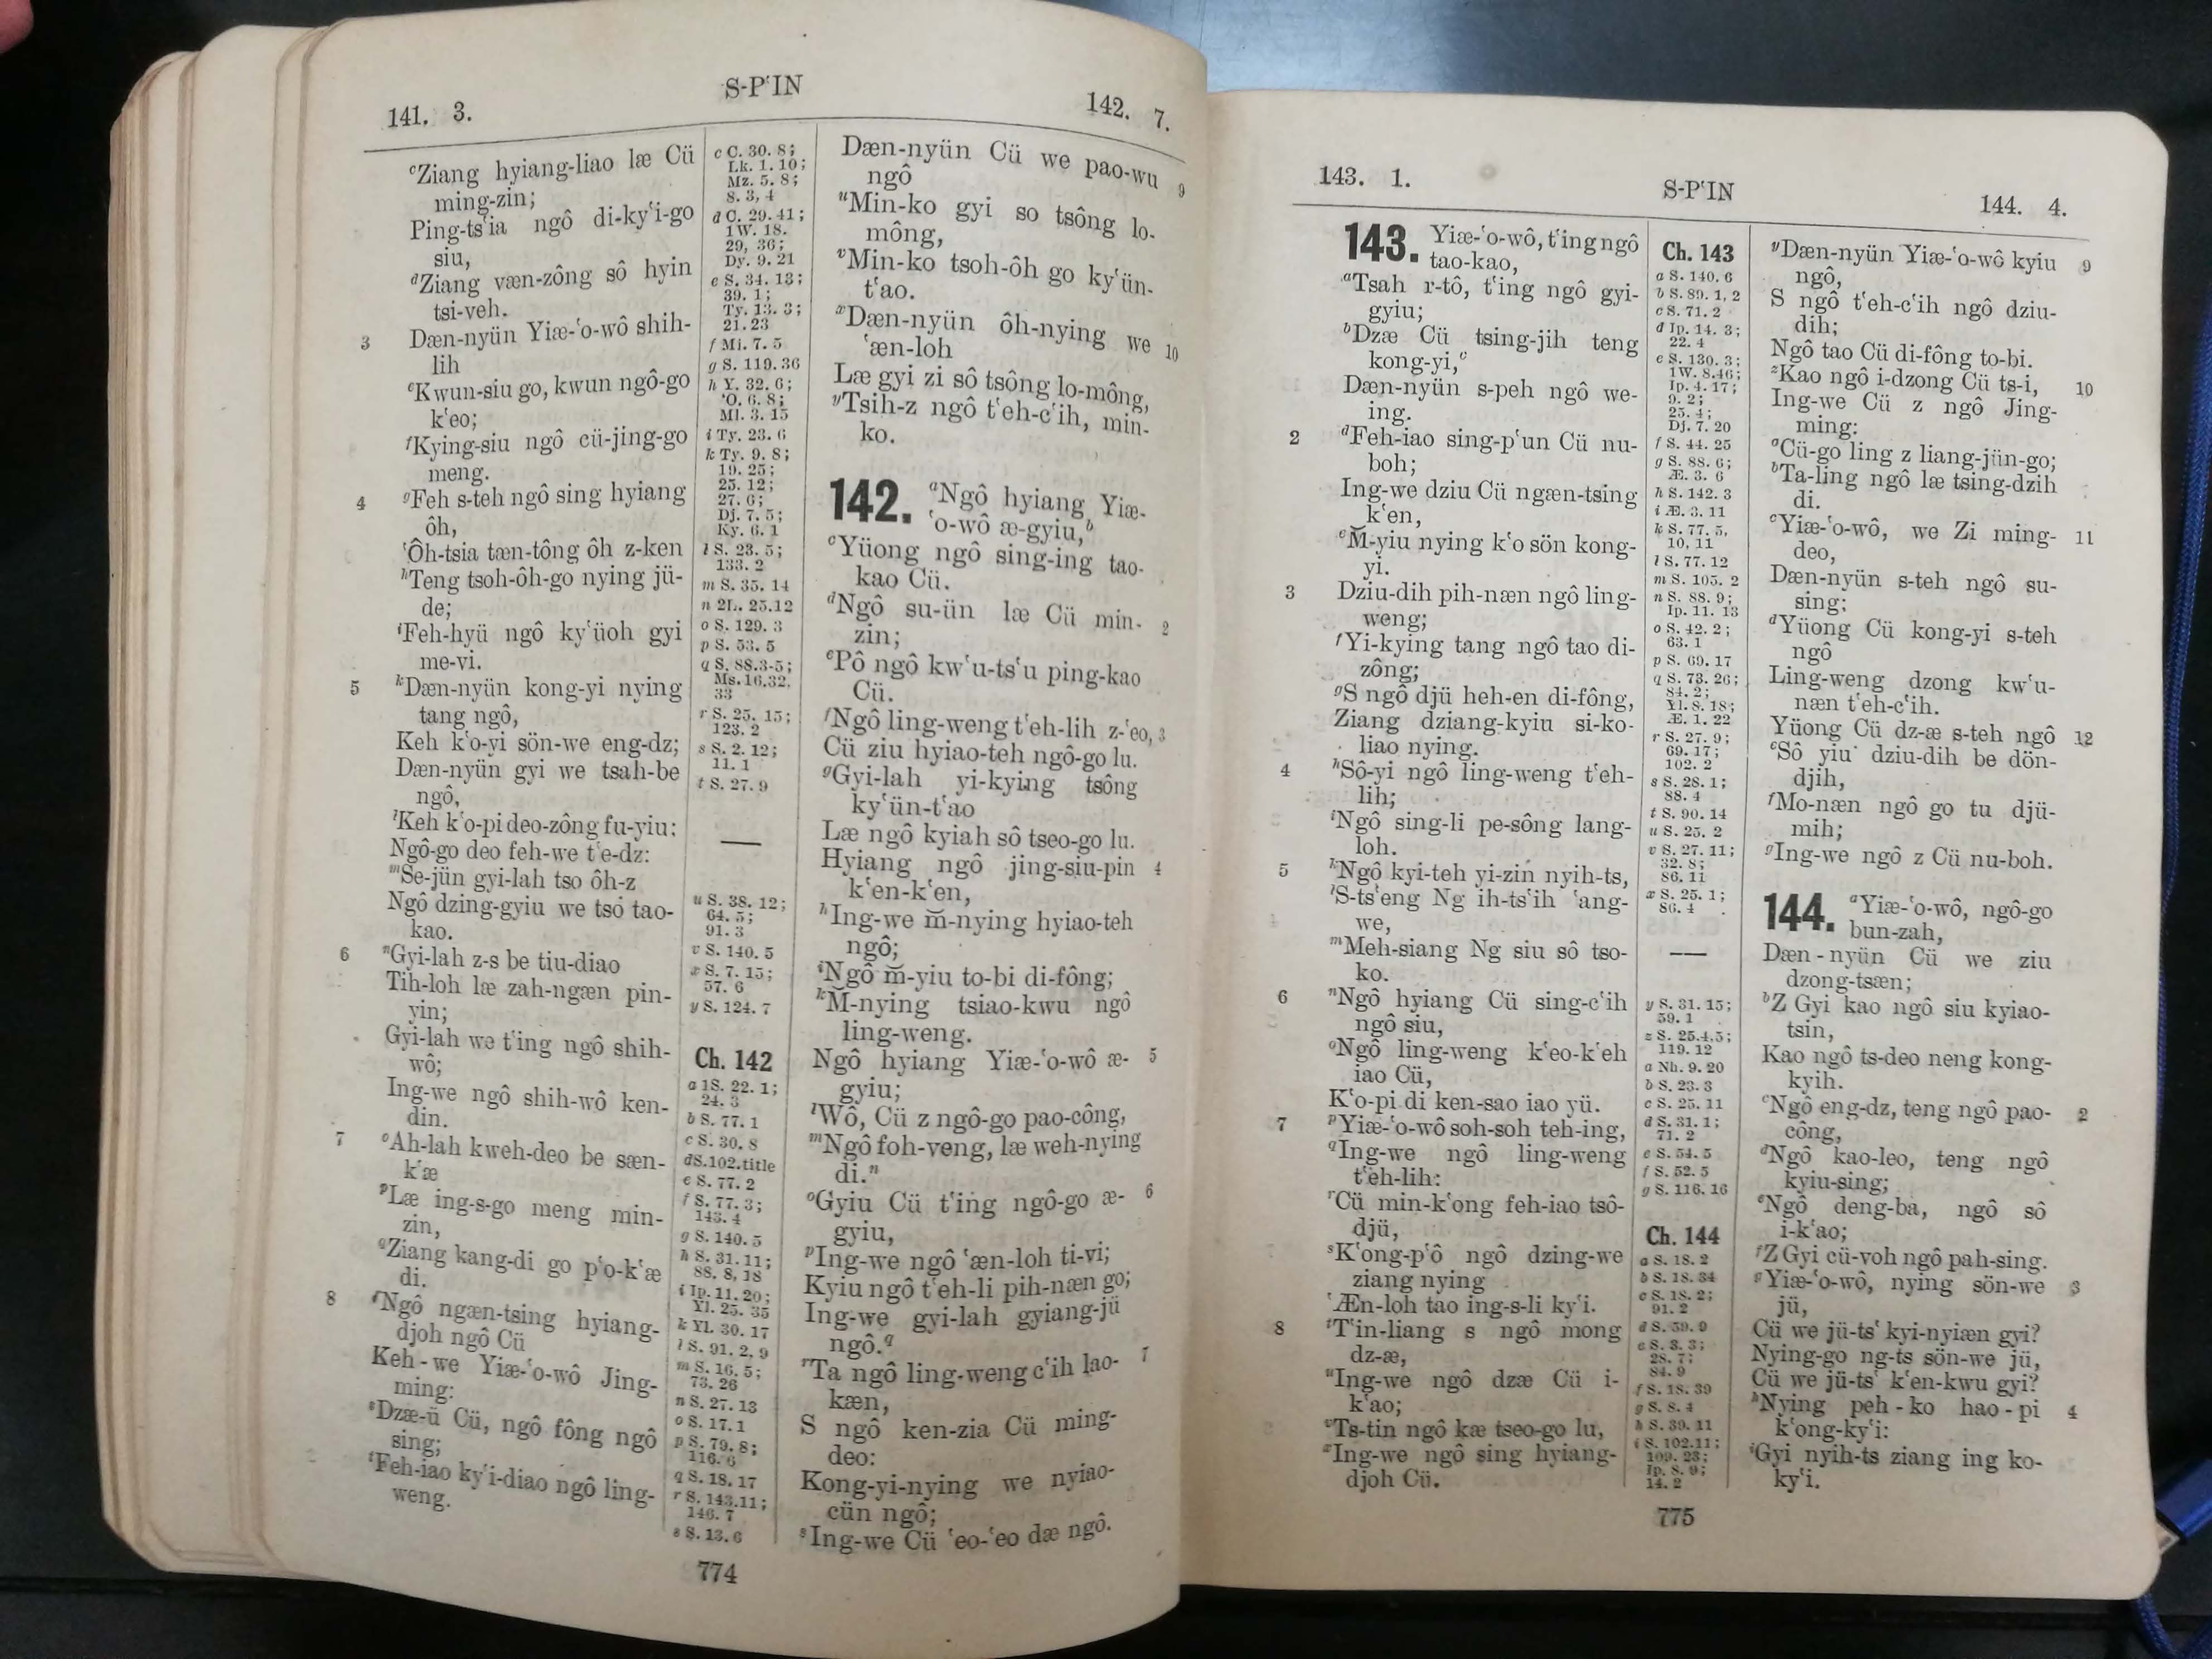 141. 3.
S-PʽIN
142. 7.
ᶜZiang hyiang-liao læ Cü
ming-zin;
Ping-tsʽia ngô di-kyʽi-go
siu,
ᵈZiang væn-zông sô hyin
tsi-veh.
3 Dæn-nyün Yiæ-ʽo-wô shih-
lih
ᵉKwun-siu go, kwun ngô-go
kʽeo;
ᶠKying-siu ngô cü-jing-go
meng.
4 ᵍFeh s-teh ngô sing hyiang
ôh,
ʽÔh-tsia tæn-tông ôh z-ken
ʰTeng tsoh-ôh-go nying jü-
de;
ⁱFeh-hyü ngô kyʽüoh gyi
me-vi.
5 ᵏDæn-nyün kong-yi nying
tang ngô,
Keh kʽo-yi sön-we eng-dz;
Dæn-nyün gyi we tsah-be
ngô,
ˡKeh kʽo-pi deo-zông fu-yiu:
Ngô-go deo feh-we tʽe-dz:
ᵐSe-jün gyi-lah tso ôh-z
Ngô dzing-gyiu we tso tao-
kao.
6 ⁿGyi-lah z-s be tiu-diao
Tih-loh læ zah-ngæn pin-
yin;
Gyi-lah we tʽing ngô shih-
wô;
Ing-we ngô shih-wô ken-
din.
7 ᵒAh-lah kweh-deo be sæn-
kʽæ
ᵖLæ ing-s-go meng min-
zin,
qZiang kang-di go pʽo-kʽæ
di.
8 ʳNgô ngæn-tsing hyiang-
djoh ngô Cü
Keh-we Yiæ-ʽo-wô Jing-
ming:
ˢDzæ-ü Cü, ngô fông ngô
sing;
ᵗFeh-iao kyʽi-diao ngô ling-
weng.
c C. 30. 8;
Lk. 1. 10;
Mz. 5. 8;
8. 3, 4
d C. 29. 41;
1W. 18.
29, 36;
Dy. 9. 21
e S. 34. 13;
39. 1;
Ty. 13. 3;
21. 23
f Mi. 7. 5
g S. 119. 36
h Y. 32. 6;
ʽO. 6. 8;
Ml. 3. 15
i Ty. 23. 6
k Ty. 9. 8;
19. 25;
25. 12;
27. 6;
Dj. 7. 5;
Ky. 6. 1
l S. 23. 5;
133. 2
m S. 35. 14
n 2L. 25.12
o S. 129. 3
p S. 53. 5
q S. 88.3-5;
Ms. 16.32,
33
r S. 25. 15;
123. 2
s S. 2. 12;
11. 1
t S. 27. 9
u S. 38. 12;
64. 5;
91. 3
v S. 140. 5
x S. 7. 15;
57. 6
y S. 124. 7
Ch. 142
a 1S. 22. 1;
24. 3
b S. 77. 1
c S. 30. 8
d S.102.title
e S. 77. 2
f S. 77. 3;
143. 4
g S. 140. 5
h S. 31. 11;
88. 8, 18
i Ip. 11. 20;
Yl. 25. 35
k Yl. 30. 17
l S. 91. 2, 9
m S. 16. 5;
73. 26
n S. 27. 13
o S. 17. 1
p S. 79. 8;
116. 6
q S. 18. 17
r S. 143.11;
146. 7
s S. 13. 6
Dæn-nyün Cü we pao-wu 9
ngô
ᵘMin-ko gyi so tsông lo-
mông,
ᵛMin-ko tsoh-ôh go kyʽün-
tʽao.
ˣDæn-nyün ôh-nying we 10
ʽæn-loh
Læ gyi zi sô tsông lo-mông,
ʸTsih-z ngô tʽeh-cʽih, min-
ko.
142. ᵃNgô hyiang Yiæ-
ʽo-wô æ-gyiu,ᵇ
ᶜYüong ngô sing-ing tao-
kao Cü.
ᵈNgô su-ün læ Cü min- 2
zin;
ᵉPô ngô kwʽu-tsʽu ping-kao
Cü.
ᶠNgô ling-weng tʽeh-lih z-ʽeo, 3
Cü ziu hyiao-teh ngô-go lu.
ᵍGyi-lah yi-kying tsông
kyʽün-tʽao
Læ ngô kyiah sô tseo-go lu.
Hyiang ngô jing-siu-pin 4
kʽen-kʽen,
ʰIng-we m̆-nying hyiao-teh
ngô;
ⁱNgô m̆-yiu to-bi di-fông;
ᵏM̆-nying tsiao-kwu ngô
ling-weng.
Ngô hyiang Yiæ-ʽo-wô æ- 5
gyiu;
ˡWô, Cü z ngô-go pao-công,
ᵐNgô foh-veng, læ weh-nying
di.ⁿ
ᵒGyiu Cü tʽing ngô-go æ- 6
gyiu,
ᵖIng-we ngô ʽæn-loh ti-vi;
Kyiu ngô tʽeh-li pih-næn go;
Ing-we gyi-lah gyiang-jü
ngô.q
ʳTa ngô ling-weng cʽih lao- 7
kæn,
S ngô ken-zia Cü ming-
deo:
Kong-yi-nying we nyiao-
cün ngô;
ˢIng-we Cü ʽeo-ʽeo dæ ngô.
774
143. 1.
S-PʽIN
144. 4.
143. Yiæ-ʽo-wô, tʽing ngô
tao-kao,
ᵃTsah r-tô, tʽing ngô gyi-
gyiu;
ᵇDzæ Cü tsing-jih teng
kong-yi,ᶜ
Dæn-nyün s-peh ngô we-
ing.
2 ᵈFeh-iao sing-pʽun Cü nu-
boh;
Ing-we dziu Cü ngæn-tsing
kʽen,
ᵉM̆-yiu nying kʽo sön kong-
yi.
3 Dziu-dih pih-næn ngô ling-
weng;
ᶠYi-kying tang ngô tao di-
zông;
ᵍS ngô djü heh-en di-fông,
Ziang dziang-kyiu si-ko-
liao nying.
4 ʰSô-yi ngô ling-weng tʽeh-
lih;
ⁱNgô sing-li pe-sông lang-
loh.
5 ᵏNgô kyi-teh yi-zin nyih-ts,
ˡS-tsʽeng Ng ih-tsʽih ʽang-
we,
ᵐMeh-siang Ng siu sô tso-
ko.
6 ⁿNgô hyiang Cü sing-cʽih
ngô siu,
ᵒNgô ling-weng kʽeo-kʽeh
iao Cü,
Kʽo-pi di ken-sao iao yü.
7 ᵖYiæ-ʽo-wô soh-soh teh-ing,
qIng-we ngô ling-weng
tʽeh-lih:
ʳCü min-kʽong feh-iao tsô-
djü,
ˢKʽong-pʽô ngô dzing-we
ziang nying
ʽÆn-loh tao ing-s-li kyʽi.
8 ᵗTʽin-liang s ngô mong
dz-æ,
ᵘIng-we ngô dzæ Cü i-
kʽao;
ᵛTs-tin ngô kæ tseo-go lu,
ˣIng-we ngô sing hyiang-
djoh Cü.
Ch. 143
a S. 140. 6
b S. 89. 1, 2
c S. 71. 2
d Ip. 14. 3;
22. 4
e S. 130. 3;
1W. 8.46;
Ip. 4. 17;
9. 2;
25. 4;
Dj. 7. 20
f S. 44. 25
g S. 88. 6;
Æ. 3. 6
h S. 142. 3
i Æ. 3. 11
k S. 77. 5,
10, 11
l S. 77. 12
m S. 105. 2
n S. 88. 9;
Ip. 11. 13
o S. 42. 2;
63. 1
p S. 69. 17
q S. 73. 26;
84. 2;
Yl. 8. 18;
Æ. 1. 22
r S. 27. 9;
69. 17;
102. 2
s S. 28. 1;
88. 4
t S. 90. 14
u S. 25. 2
v S. 27. 11;
32. 8;
86. 11
x S. 25. 1;
86. 4
y S. 31. 15;
59. 1
z S. 25.4,5;
119. 12
a Nh. 9. 20
b S. 23. 3
c S. 25. 11
d S. 31. 1;
71. 2
e S. 54. 5
f S. 52. 5
g S. 116. 16
Ch. 144
a S. 18. 2
b S. 18. 34
c S. 18. 2;
91. 2
d S. 59. 9
e S. 3. 3;
28. 7;
84. 9
f S. 18. 39
g S. 8. 4
h S. 39. 11
i S. 102.11;
109. 23;
Ip. 8. 9;
14. 2
ʸDæn-nyün Yiæ-ʽo-wô kyiu 9
ngô,
S ngô tʽeh-cʽih ngô dziu-
dih;
Ngô tao Cü di-fông to-bi.
ᶻKao ngô i-dzong Cü ts-i, 10
Ing-we Cü z ngô Jing-
ming:
ᵃCü-go ling z liang-jün-go;
ᵇTa-ling ngô læ tsing-dzih
di.
ᶜYiæ-ʽo-wô, we Zi ming- 11
deo,
Dæn-nyün s-teh ngô su-
sing;
ᵈYüong Cü kong-yi s-teh
ngô
Ling-weng dzong kwʽu-
næn tʽeh-cʽih.
Yüong Cü dz-æ s-teh ngô 12
ᵉSô yiu dziu-dih be dön-
djih,
ᶠMo-næn ngô go tu djü-
mih;
ᵍIng-we ngô z Cü nu-boh.
144. ᵃYiæ-ʽo-wô, ngô-go
bun-zah,
Dæn-nyün Cü we ziu
dzong-tsæn;
ᵇZ Gyi kao ngô siu kyiao-
tsin,
Kao ngô ts-deo neng kong-
kyih.
ᶜNgô eng-dz, teng ngô pao- 2
công,
ᵈNgô kao-leo, teng ngô
kyiu-sing;
ᵉNgô deng-ba, ngô sô
i-kʽao;
ᶠZ Gyi cü-voh ngô pah-sing.
ᵍYiæ-ʽo-wô, nying sön-we 3
jü,
Cü we jü-tsʽ kyi-nyiæn gyi?
Nying-go ng-ts sön-we jü,
Cü we jü-tsʽ kʽen-kwu gyi?
ʰNying peh-ko hao-pi 4
kʽong-kyʽi:
ⁱGyi nyih-ts ziang ing ko-
kyʽi.
775